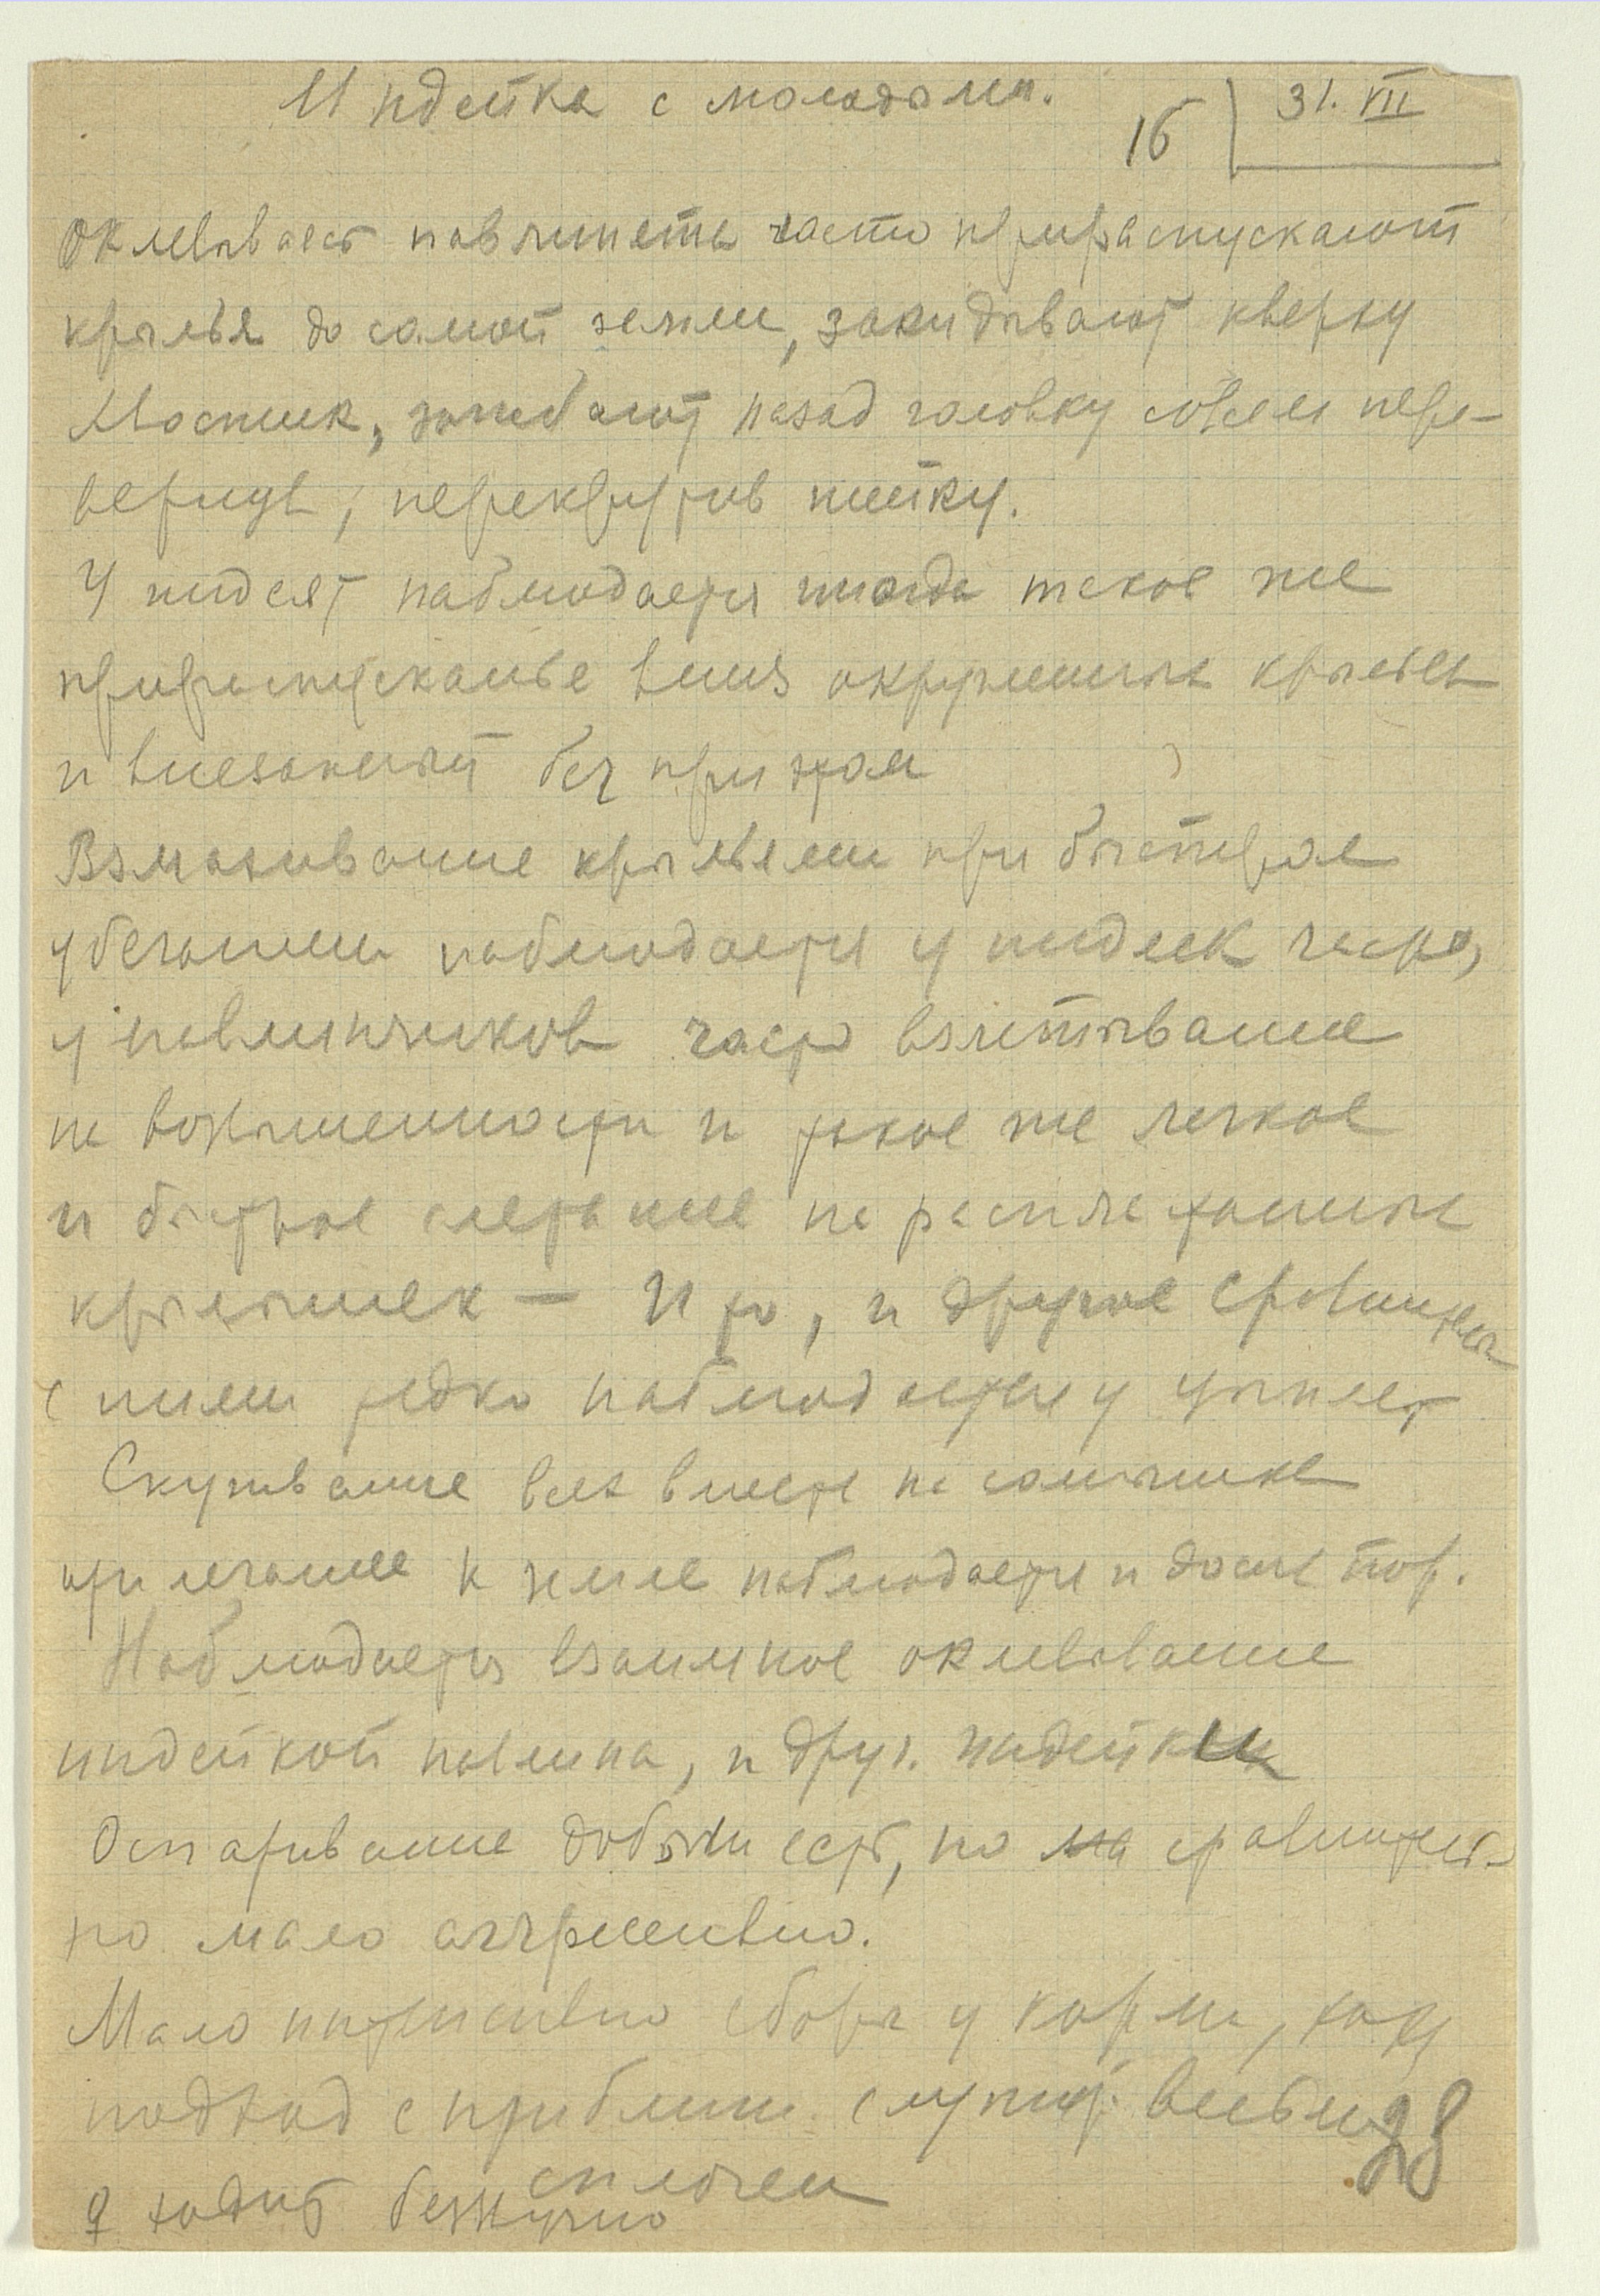 Индейка с молодыми.
16 31. VII
павлинята часто прираспускают
крылья до самой земли, закидывают кверху
хвостик, загибают назад головку совсем пере-
вернув, перекрутив шейку.
У индеят наблюдается иногда такое же
прираспусканье вниз округленных крыльев
и внезапный бег при этом
Взмахивание крыльями при быстром
убегании наблюдается у индеек часто,
у павлинчиков часто взлетывание
на возвышенности и такое же легкое
и быстрое слетание на распластанных
крылышек — И то, и другое сравнительно
с ними редко наблюдается у цыплят
Скучивание всех вместе на солнышке
прилегание к земле наблюдается и до сих пор.
Наблюдается взаимное оклевывание
индейкой павлина, и друг. индейки
Оспаривание добычи есть, но на сравнитель-
но мало агрессивно.
Мало интенсивно сборы у корма,
подход с приближ.
♀ ходит
28